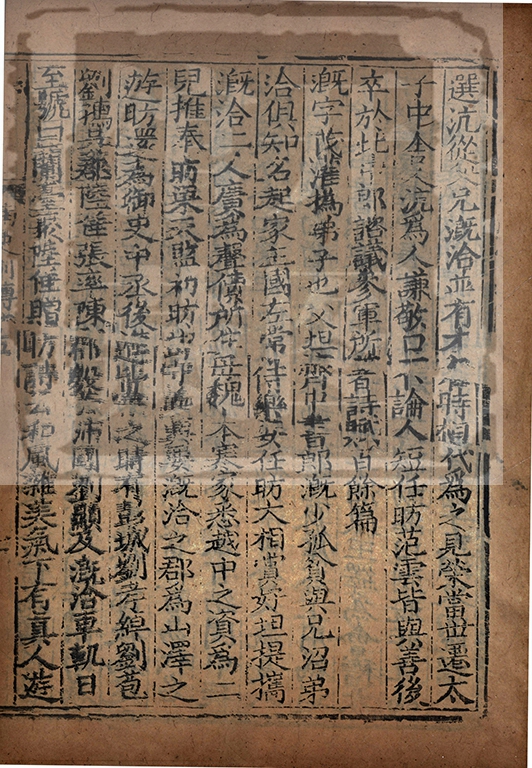 選沆從父兄溉洽並有才名時相代為之見榮當世遷太
子中舍人沆為人謙敬口不論人短任昉范雲皆與善後
卒於北中郎諮議參軍所著詩賦百餘篇
溉字茂灌撝弟子也父坦齊中書郎溉少孤貧與兄沼弟
洽俱知名起家王國左常侍樂安任昉大相賞好坦提攜
溉洽二人廣為聲價所生母魏本寒家悉越中之資為二
兒推奉昉梁天監初昉出守義興要溉洽之郡為山澤之
遊昉還為御史中丞後進皆宗之時有彭城劉孝綽劉苞
劉孺吳郡陸倕張率陳郡殷芸沛國劉顯及溉洽車軌日
至號曰蘭臺聚陸倕贈昉詩云和風雜美氣下有真人遊